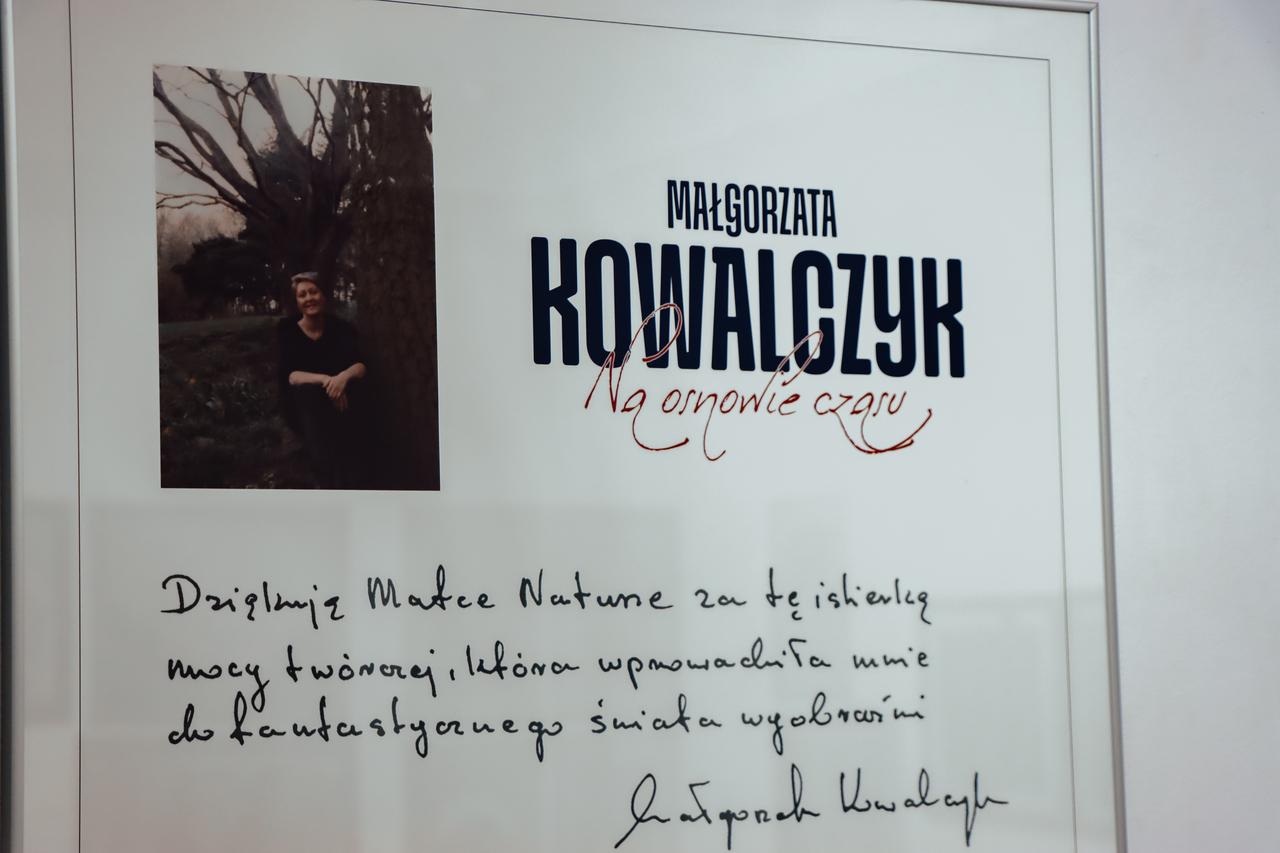 MAŁGORZATA
KOWALCZYK
Na osnowie czasu
Dziękuję Matce Naturze za tę iskierkę
mocy twórczej, która wprowadziła mnie
do fantastycznego świata wyobraźni
Małgorzata Kowalczyk